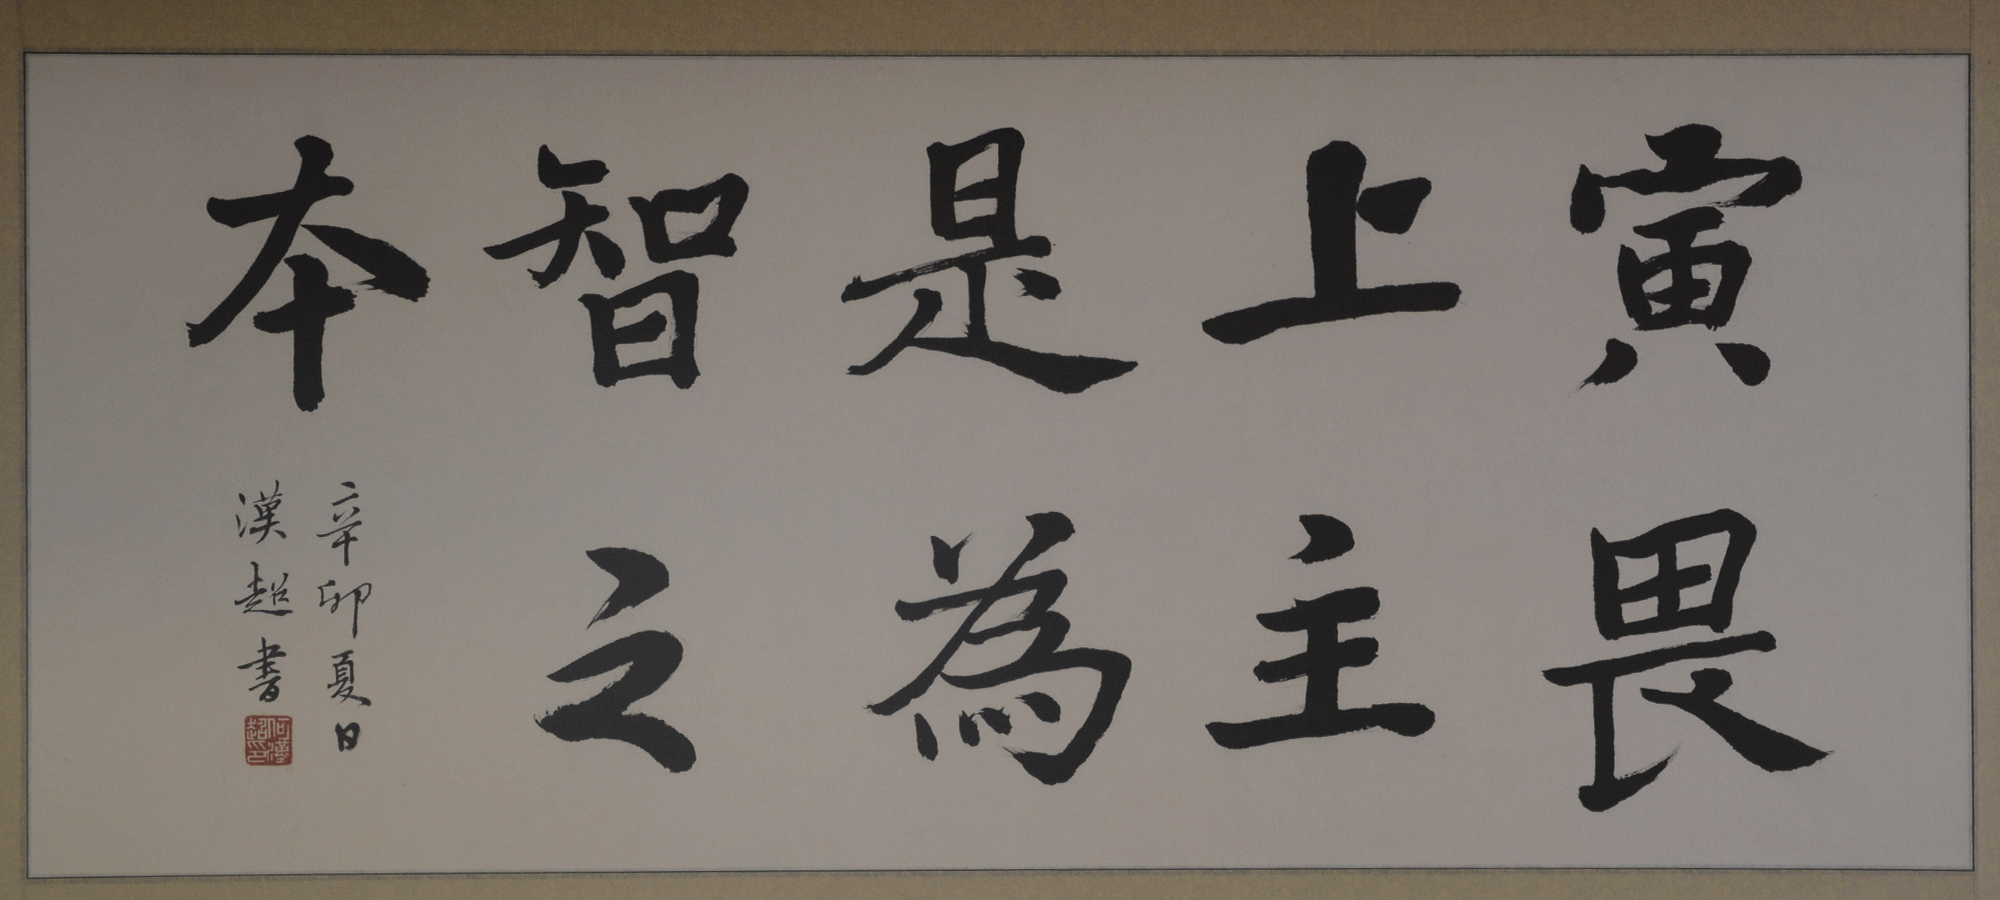 寅畏
上主
是為
智之
本
辛卯夏日
漢超書
何漢
超印